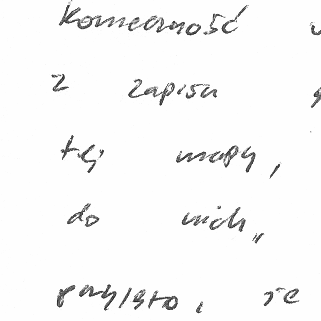 Konieczność
z zapisu
tej mapy,
do nich,,
przyjęto, że